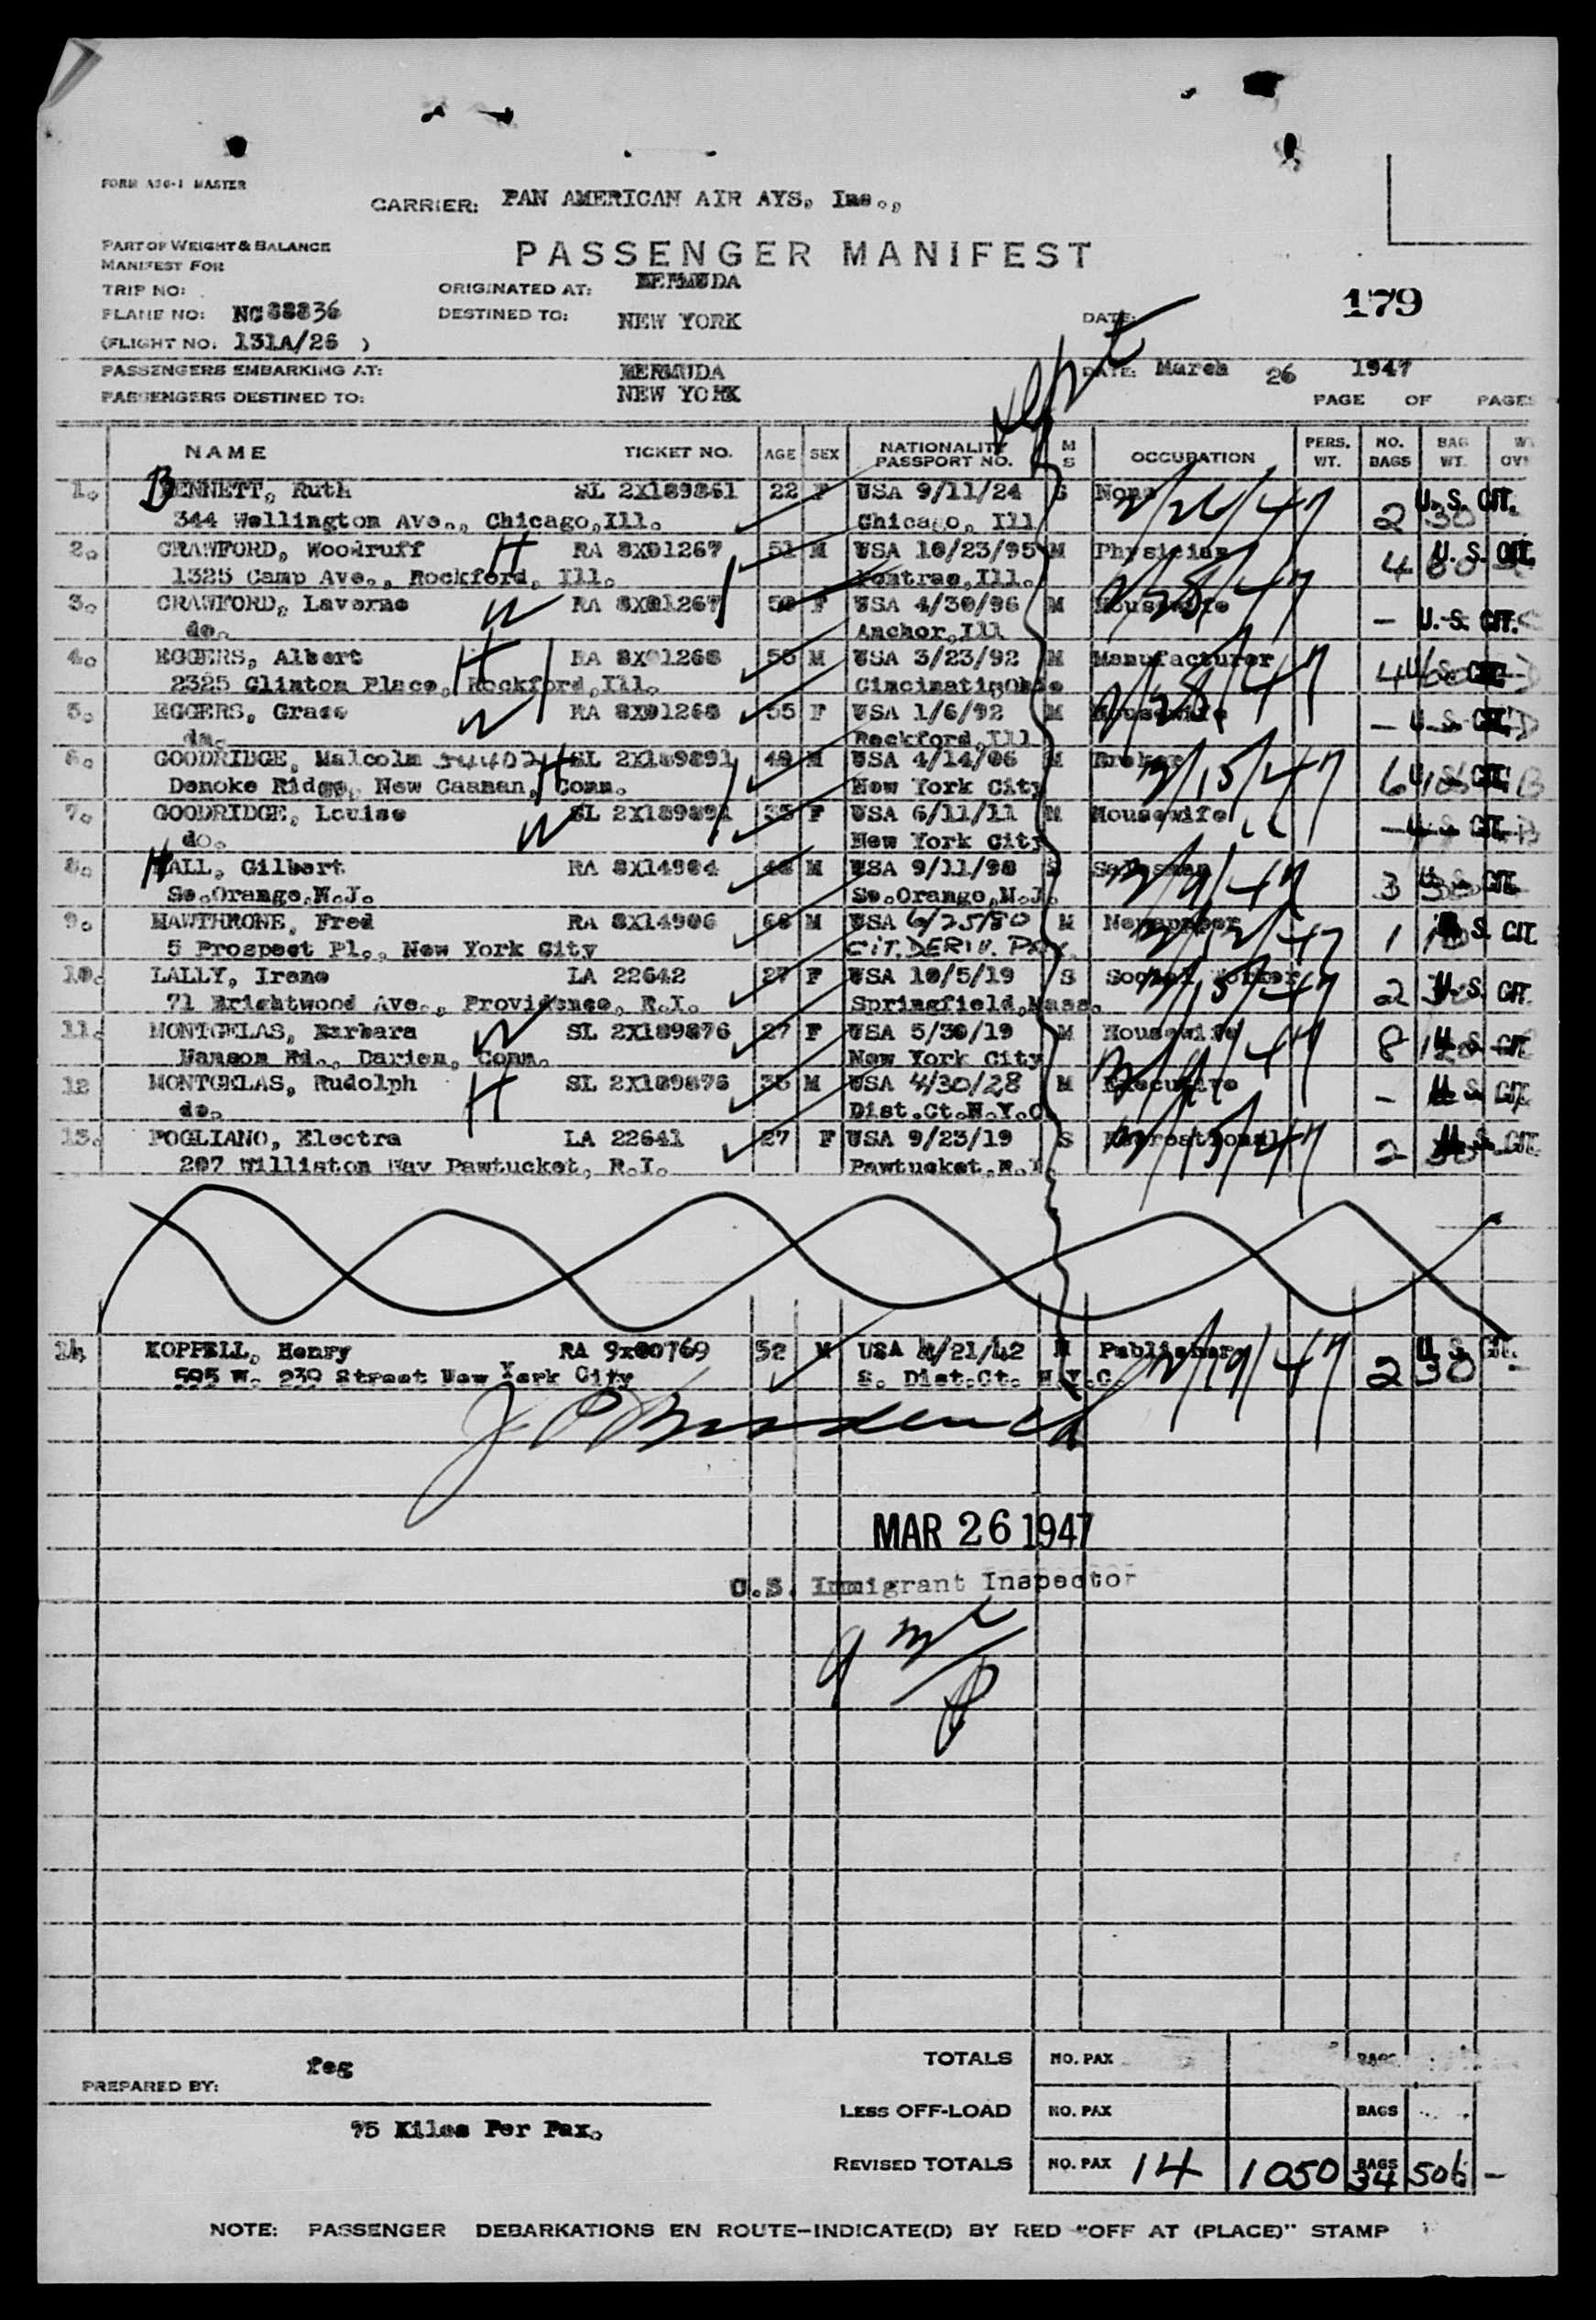 FORM A36-1 MASTER
CARRIER: PAN AMERICAN AIR AYS, Inc.,
PART OF WEIGHT & BALANCE
MANIFEST FOR
PASSENGER MANIFEST
TRIP NO:
ORIGINATED AT: BERMUDA
179
PLANE NO: NC88836
DESTINED TO: NEW YORK
DATE:
(FLIGHT NO: 131A/26 )
Sept
PASSENGERS EMBARKING AT: BERMUDA
DATE: March 26 1947
PASSENGERS DESTINED TO: NEW YORK
PAGE OF PAGES
NAME TICKET NO. AGE SEX NATIONALITY PASSPORT NO. M S OCCUPATION PERS. WT. NO. BAGS BAG WT.
1. BENNETT, Ruth SL 2X189861 22 F USA 9/11/24 S None 2 30 U.S. CIT.
344 Wellington Ave., Chicago,Ill. Chicago, Ill
2. CRAWFORD, Woodruff H RA 8X01267 51 M USA 10/23/95 M Physician 4 60 U.S. CIT.
1325 Camp Ave., Rockford, Ill. Pontrac,Ill.
3. CRAWFORD, Laverne W RA 8X01267 50 F USA 4/30/96 M Housewife - U.S. CIT.
do. Anchor,Ill
4. EGGERS, Albert H RA 8X01268 55 M USA 3/23/92 M Manufacturer 4
2325 Clinton Place, Rockford,Ill. Cincinati,Ohio
5. EGGERS, Grace W RA 8X01268 55 F USA 1/6/92 M Housewife - U.S. CIT.
do. Rockford,Ill
6. GOODRIDGE, Malcolm H SL 2X189891 40 M USA 4/14/06 M Broker 2/15/47 6
Denoke Ridge, New Caanan, Conn. New York City
7. GOODRIDGE, Louise W SL 2X189891 35 F USA 6/11/11 M Housewife "
do. New York City
8. HALL, Gilbert RA 8X14904 48 M USA 9/11/98 S Salesman 3
So.Orange,N.J. So.Orange,N.J.
9. HAWTHRONE, Fred RA 8X14906 66 M USA 6/25/80 M Newspaper 1 S. CIT.
5 Prospect Pl., New York City CIT. DERIV.
10. LALLY, Irene LA 22642 27 F USA 10/5/19 S Social Worker 2 U.S. CIT.
71 Brightwood Ave., Providence, R.I. Springfield,Mass.
11. MONTGELAS, Barbara W SL 2X189876 27 F USA 5/30/19 M Housewife 8
Hanson Rd., Darien, Conn. New York City
12 MONTGELAS, Rudolph H SL 2X189876 35 M USA 4/30/28 M Executive - U.S. CIT.
do. Dist.Ct.N.Y.C
13. POGLIANO, Electra LA 22641 27 F USA 9/23/19 S Recreational 2
207 Williston Way Pawtucket, R.I. Pawtucket,R.I.
14 KOPPELL, Henry RA 9x00769 52 M USA 4/21/42 M Publisher 2/19/47 2 30
595 W. 239 Street New York City S. Dist.Ct. N.Y.C.
MAR 26 1947
U.S. Immigrant Inspector
TOTALS NO. PAX BAGS
PREPARED BY: feg
LESS OFF-LOAD NO. PAX BAGS
75 Kilos Per Pax.
REVISED TOTALS NO. PAX 14 1050 BAGS 34 506 -
NOTE: PASSENGER DEBARKATIONS EN ROUTE-INDICATE(D) BY RED "OFF AT (PLACE)" STAMP